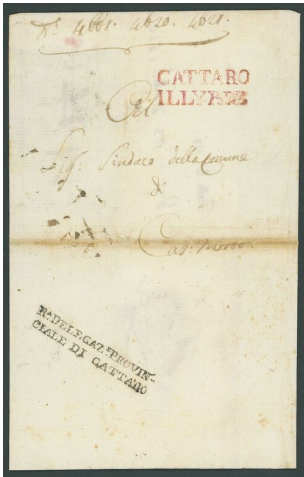 N.¹ 4661. 4620. 4621.
CATTARO
ILLYRIE
Al
Sig: Sindaco della Comune
di
Cas: nuovo
R.ᵃ DELEGAZ.ᵉ PROVIN-
CIALE DI CATTARO